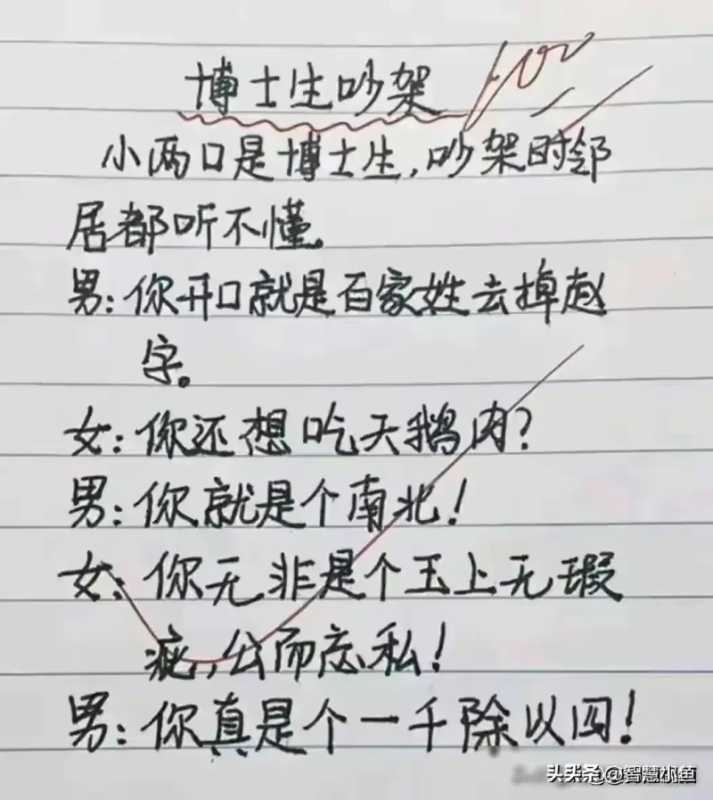 博士生吵架
100
小两口是博士生，吵架时邻
居都听不懂。
男：你开口就是百家姓去掉赵
字。
女：你还想吃天鹅肉？
男：你就是个南北！
女：你无非是个玉上无瑕
疵，公而忘私！
男：你真是个一千除以四！
头条 @智慧小鱼